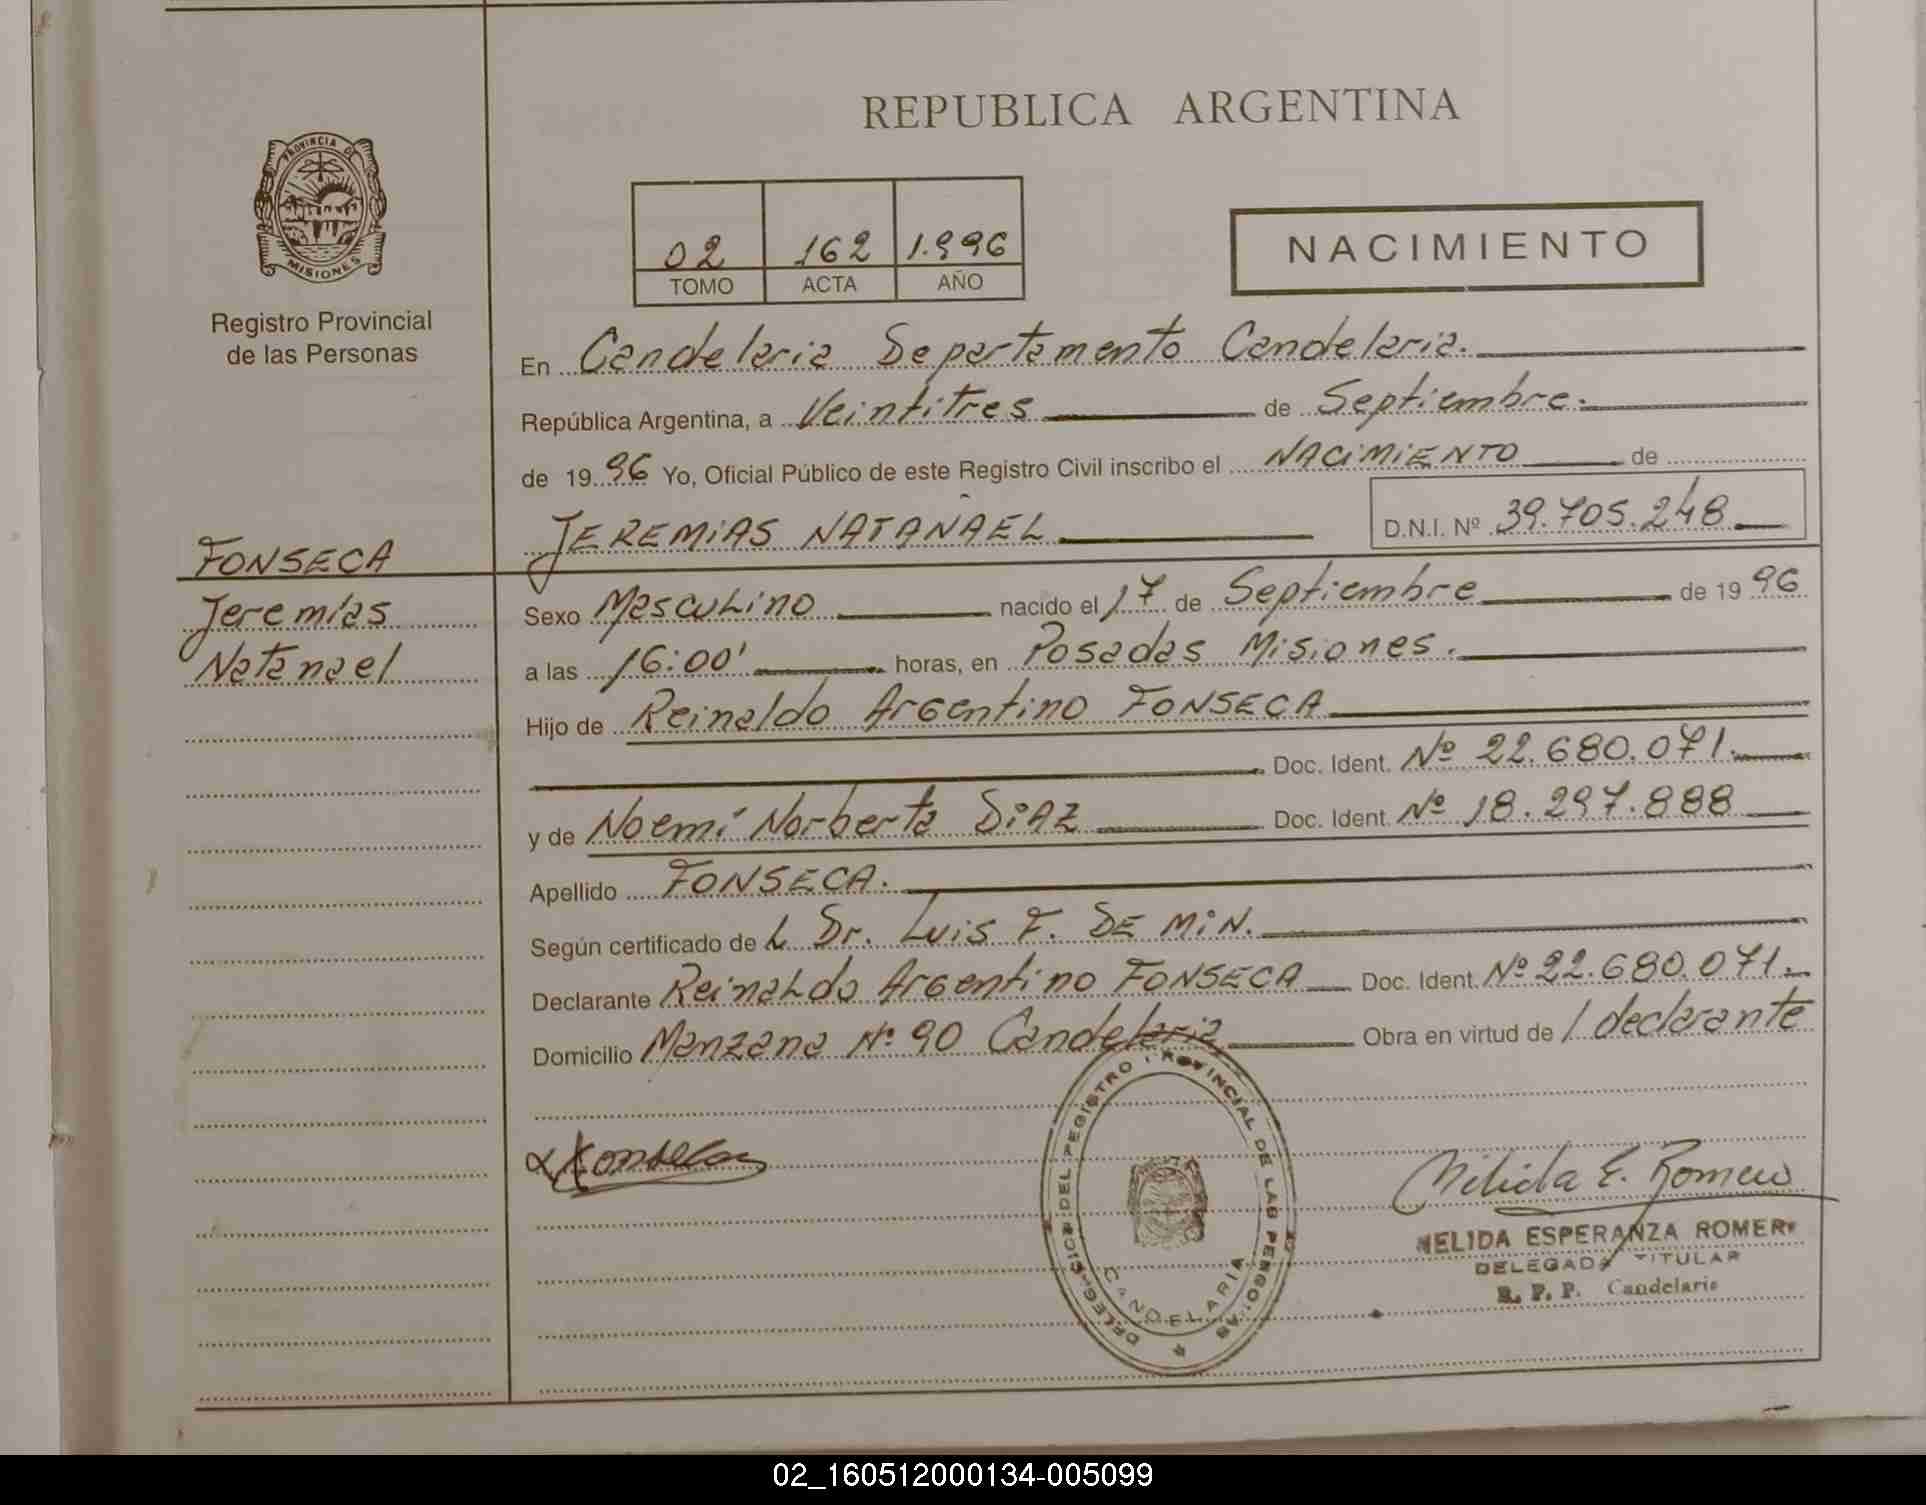 REPUBLICA ARGENTINA
PROVINCIA DE
MISIONES
Registro Provincial
de las Personas
02 162 1.996
TOMO ACTA AÑO
NACIMIENTO
En Candelaria Departamento Candelaria.
República Argentina, a Veintitres de Septiembre.
de 1996 Yo, Oficial Público de este Registro Civil inscribo el NACIMIENTO de
JEREMIAS NATANAEL D.N.I. Nº 39.705.248
FONSECA
Jeremías
Natanael
Sexo Masculino nacido el 17 de Septiembre de 1996
a las 16:00' horas, en Posadas Misiones.
Hijo de Reinaldo Argentino FONSECA
Doc. Ident. Nº 22.680.071.
y de Noemí Norberta DiAZ Doc. Ident. Nº 18.297.888
Apellido FONSECA.
Según certificado de L Dr. Luis F. DE MiN.
Declarante Reinaldo Argentino FONSECA Doc. Ident. Nº 22.680.071.
Domicilio Manzana Nº 90 Candelaria Obra en virtud de / declarante
DELEGACION DEL REGISTRO PROVINCIAL DE LAS PERSONAS
CANDELARIA
Fonseca
Nélida E. Romero
NELIDA ESPERANZA ROMERO
DELEGADA TITULAR
R. P. P. Candelaria
02_160512000134-005099